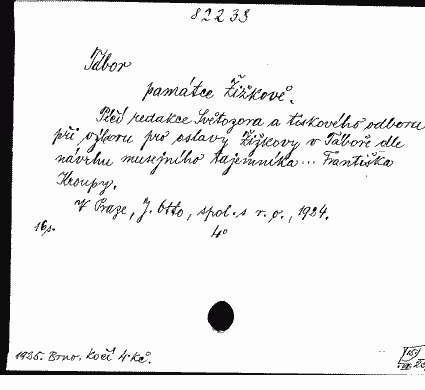 82233
Tábor
památce Žižkově.
Péčí redakce Světozora a tiskového odboru
při výboru pro oslavy Žižkovy v Táboře dle
návrhu musejního tajemníka... Františka
Kroupy.
V Praze, J. Otto, spol. s r. o., 1924.
16 s. 4°
1925. Brno. Kočí 4 Kč.